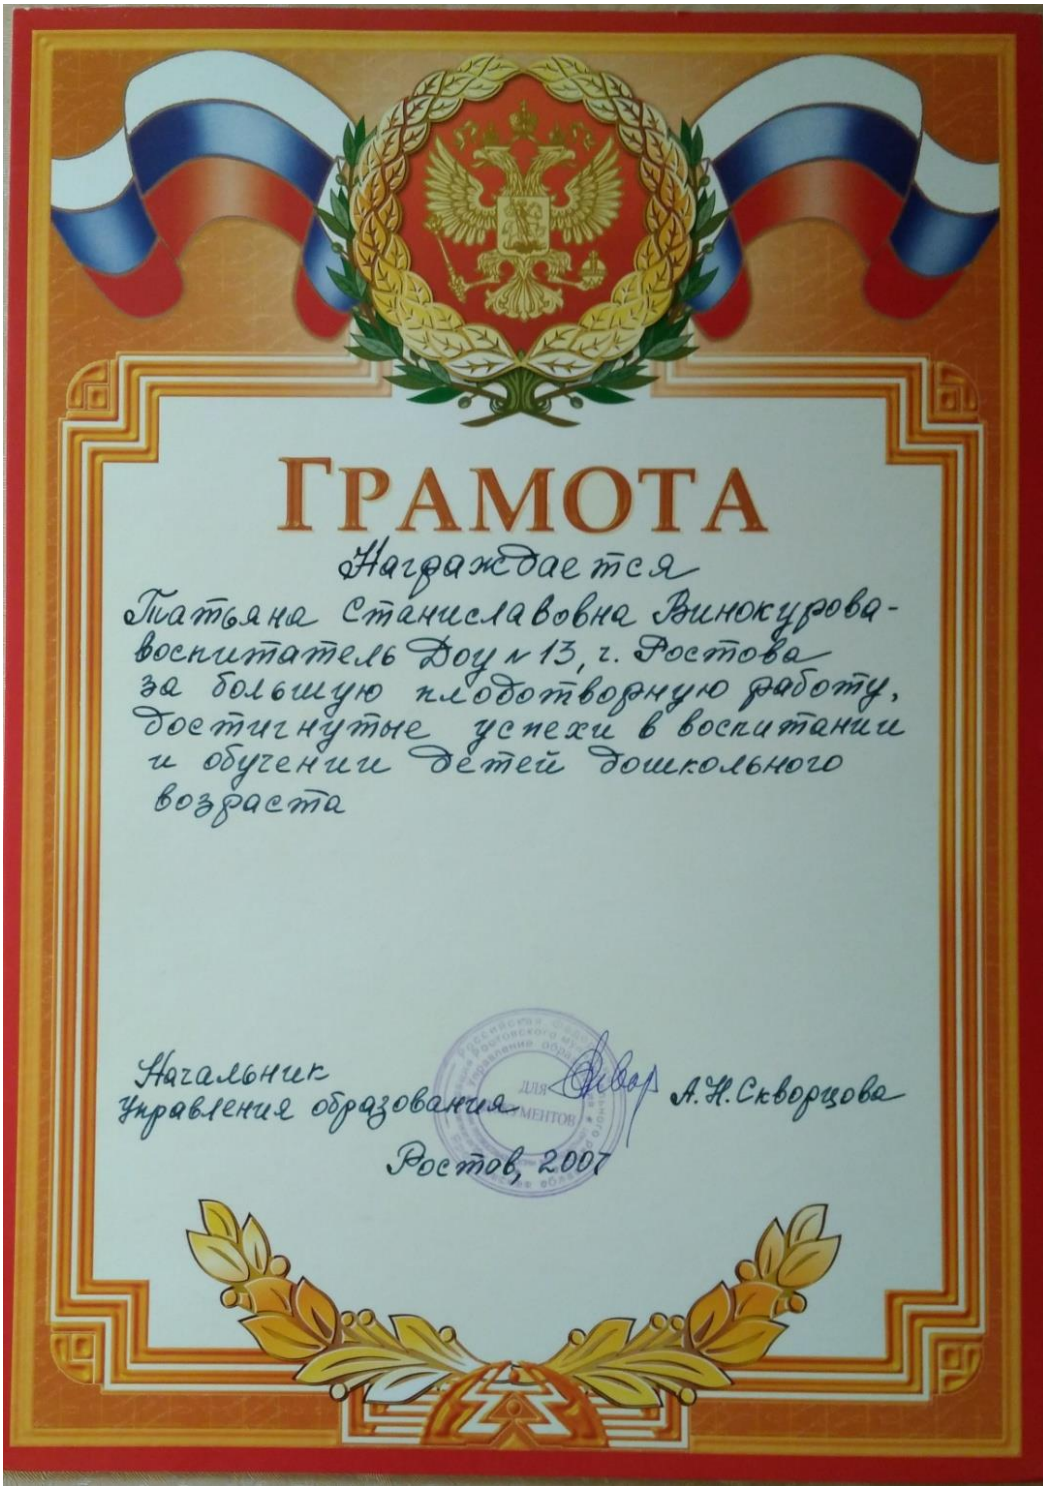 ГРАМОТА
Награждается
Татьяна Станиславовна Винокурова-
воспитатель Доу №13, г. Ростова
за большую плодотворную работу,
достигнутые успехи в воспитании
и обучении детей дошкольного
возраста
Начальник
Управления образования
А.Н. Скворцова
ДЛЯ
Ростов, 2007